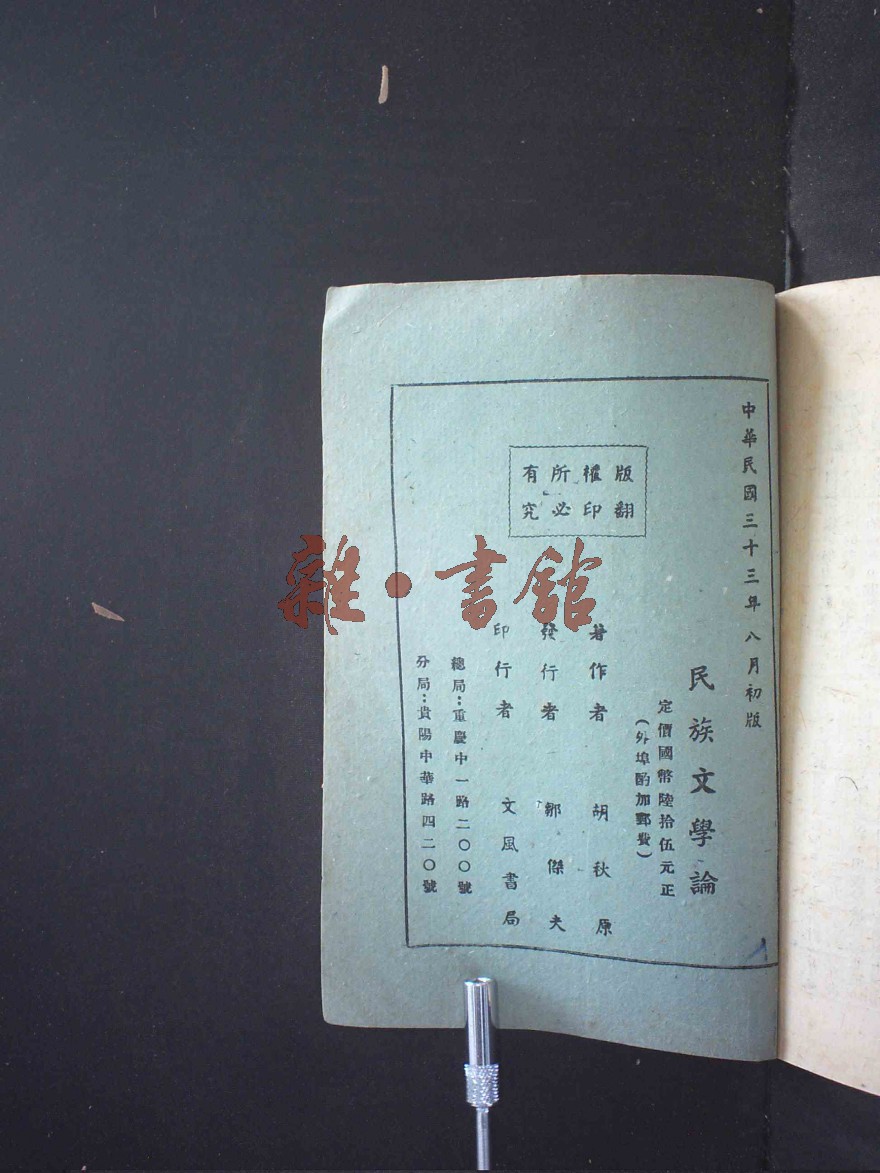 中華民國三十三年八月初版
民族文學論
定價國幣陸拾伍元正
（外埠酌加郵費）
版權所有
翻印必究
著作者　胡秋原
發行者　鄒傑夫
印行者　文風書局
總局：重慶中一路二〇〇號
分局：貴陽中華路四二〇號
雜·書館